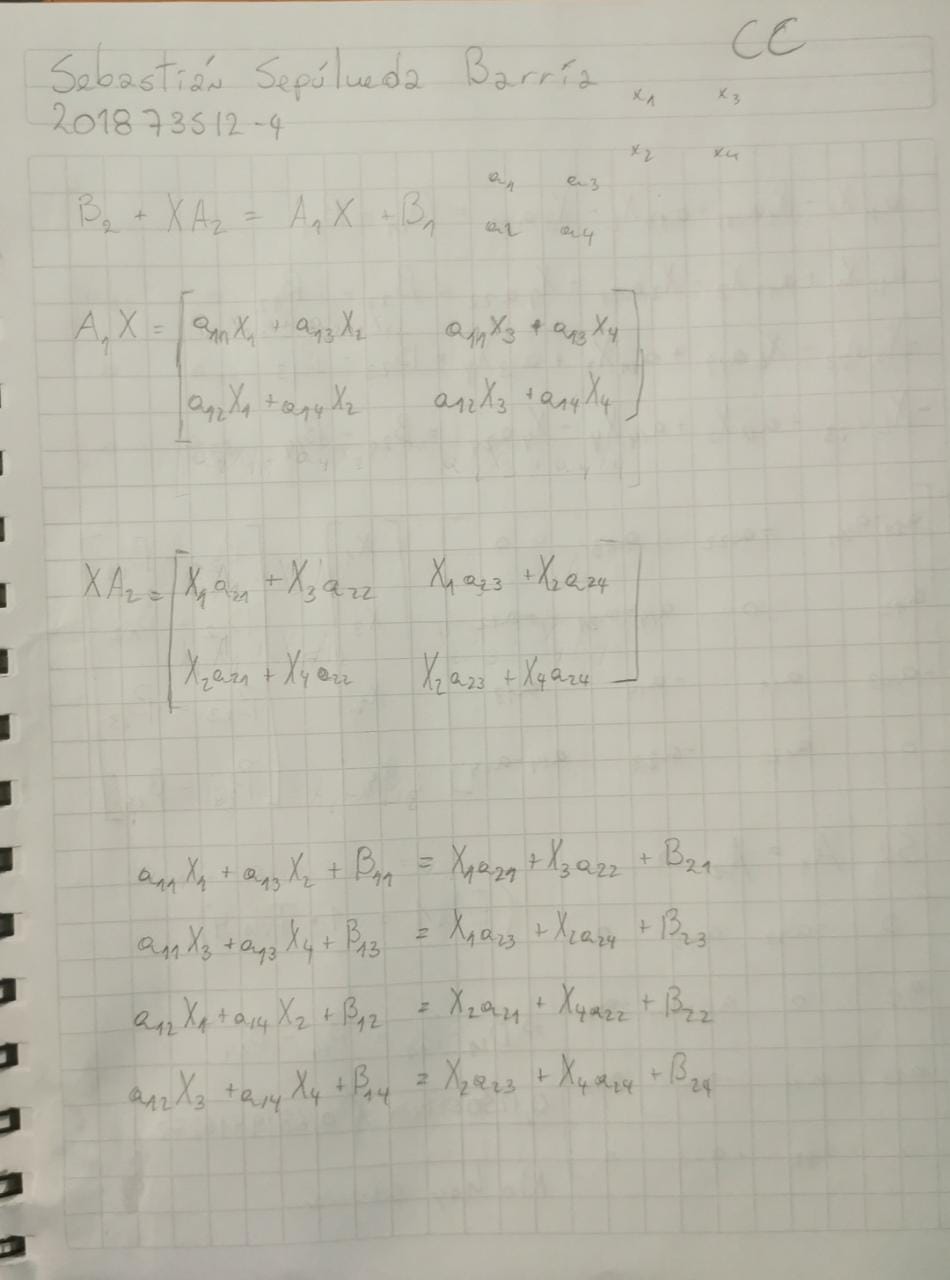 CC
Sebastián Sepúlveda Barría
201873512-4
x₁ x₃
x₂ x₄
a₁ a₃
a₂ a₄
B₂ + XA₂ = A₁X + B₁
A₁X = [ a₁₁X₁ + a₁₃X₂ a₁₁X₃ + a₁₃X₄
a₁₂X₁ + a₁₄X₂ a₁₂X₃ + a₁₄X₄ ]
XA₂ = [ X₁a₂₁ + X₃a₂₂ X₁a₂₃ + X₂a₂₄
X₂a₂₁ + X₄a₂₂ X₂a₂₃ + X₄a₂₄ ]
a₁₁X₁ + a₁₃X₂ + B₁₁ = X₁a₂₁ + X₃a₂₂ + B₂₁
a₁₁X₃ + a₁₃X₄ + B₁₃ = X₁a₂₃ + X₂a₂₄ + B₂₃
a₁₂X₁ + a₁₄X₂ + B₁₂ = X₂a₂₁ + X₄a₂₂ + B₂₂
a₁₂X₃ + a₁₄X₄ + B₁₄ = X₂a₂₃ + X₄a₂₄ + B₂₄